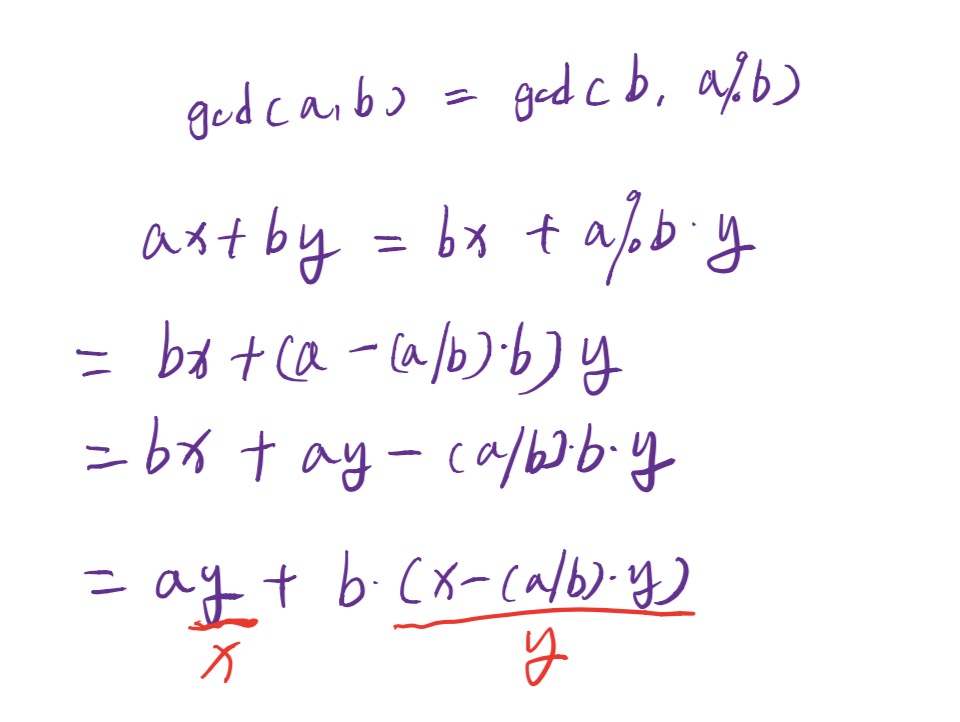 gcd(a,b) = gcd(b, a%b)
ax+by = bx + a%b·y
= bx+(a-(a/b)·b)y
= bx + ay - (a/b)·b·y
= ay + b·(x-(a/b)·y)
x y